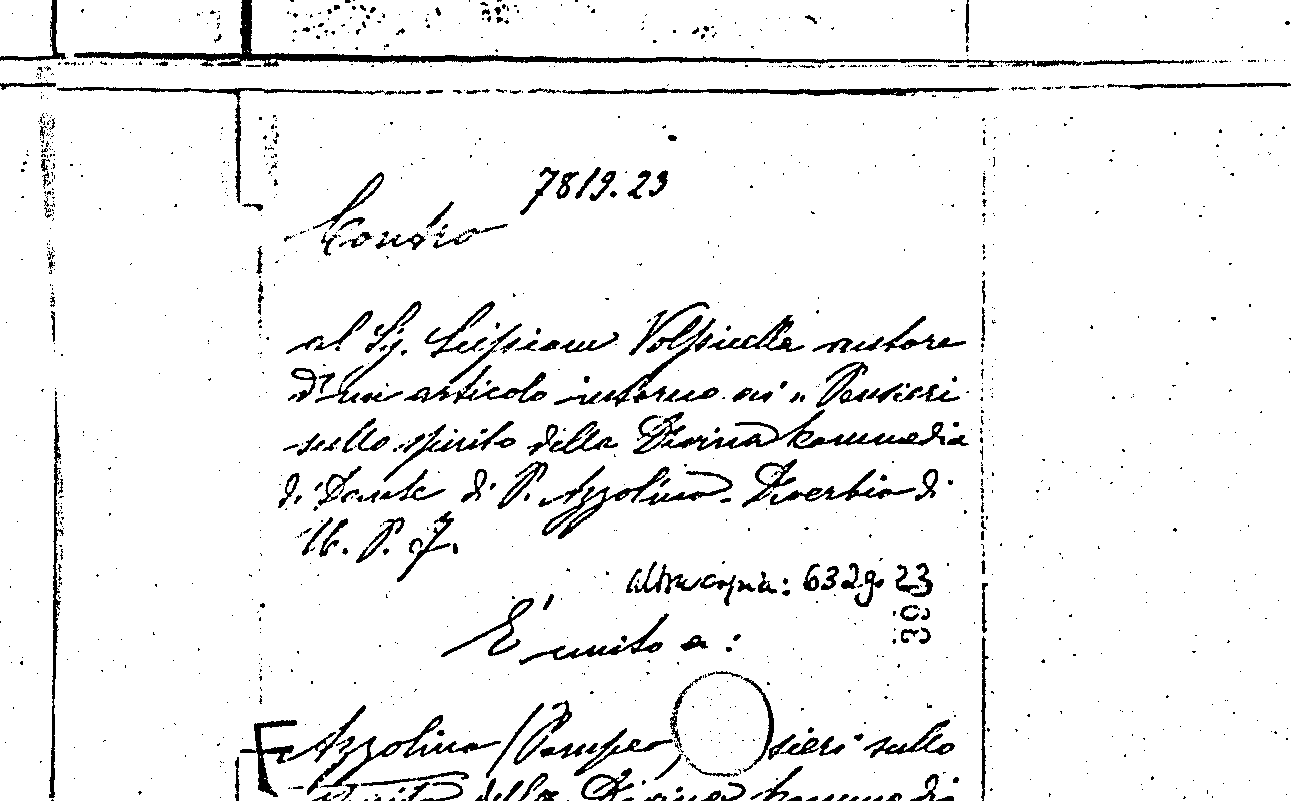 7819.23
Contro
al Sig. Scipione Volpicella autore
d'un articolo intorno ai "Pensieri
sullo spirito della Divina Commedia
di Dante di P. Azzolino. Diverbio di
P. J.
altra copia: 6329.23
393
È unito a:
Azzolino (Pompeo) sieri sullo
spirito della Divina Commedia